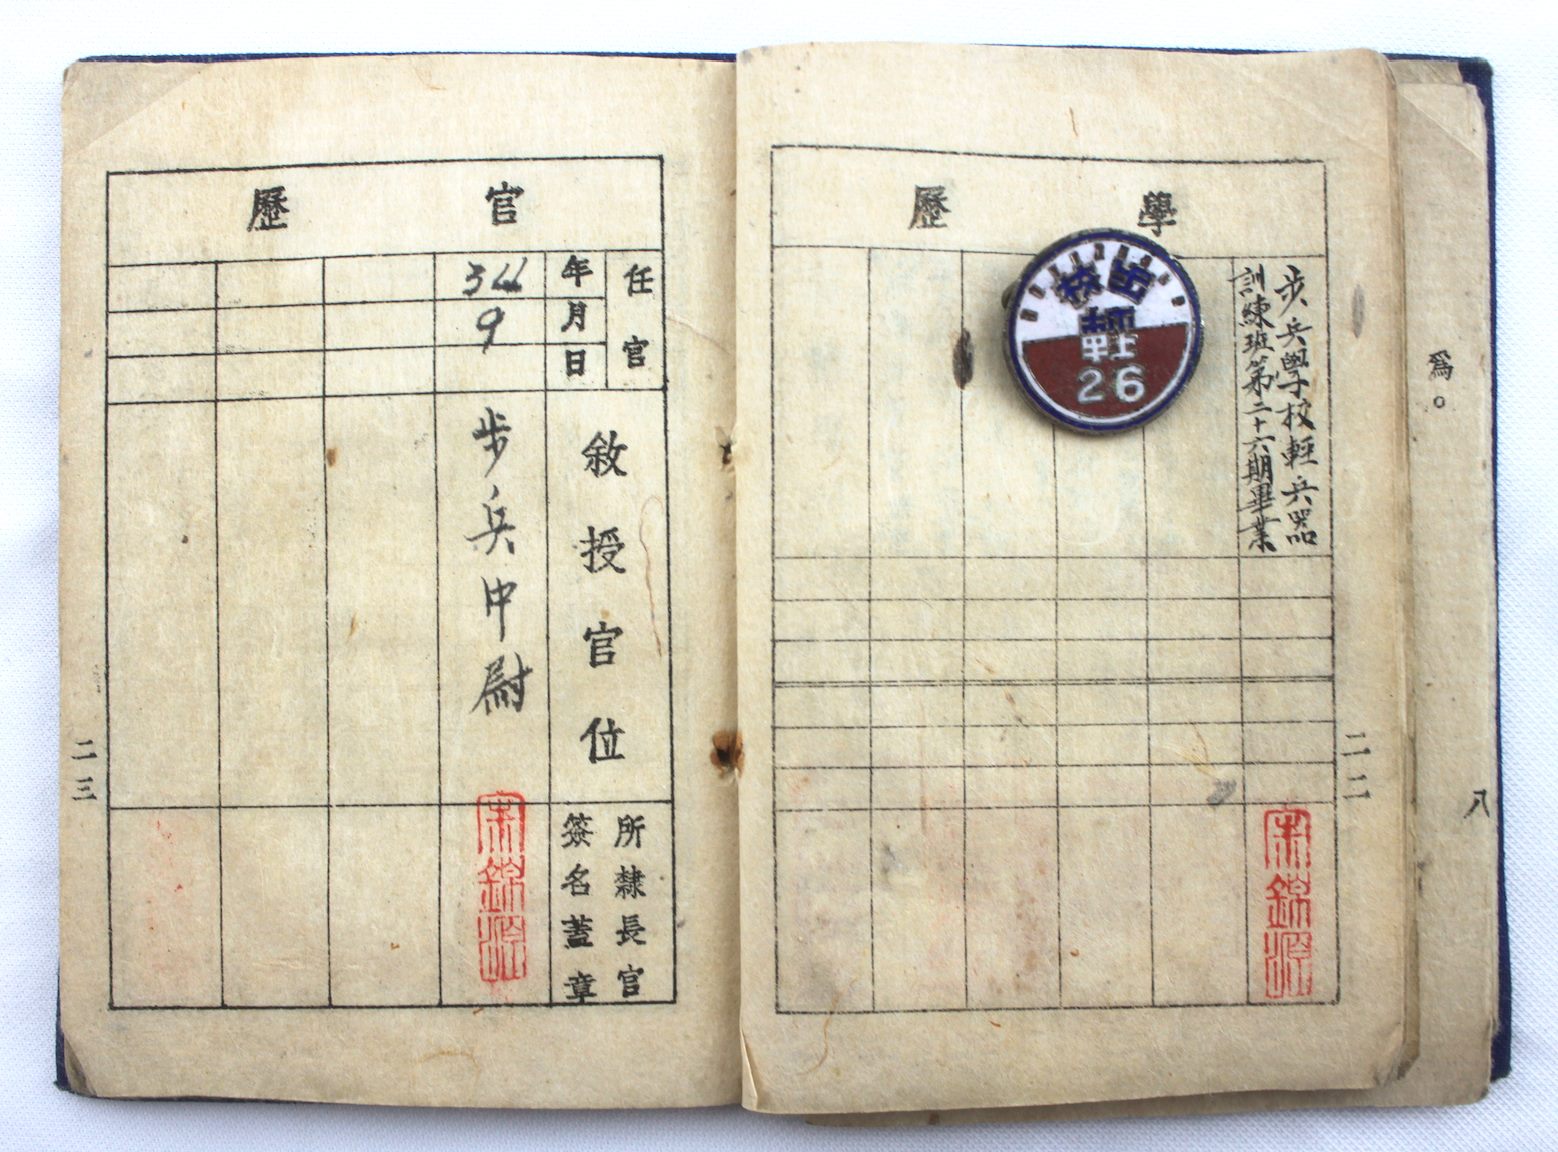 爲。
八
學歷
步兵學校輕兵器
訓練班第二十六期畢業
步校
輕
26
宋錦源
二二
官歷
任官
年
月
日
敘授官位
所隸長官
簽名蓋章
9
步兵中尉
宋錦源
二三